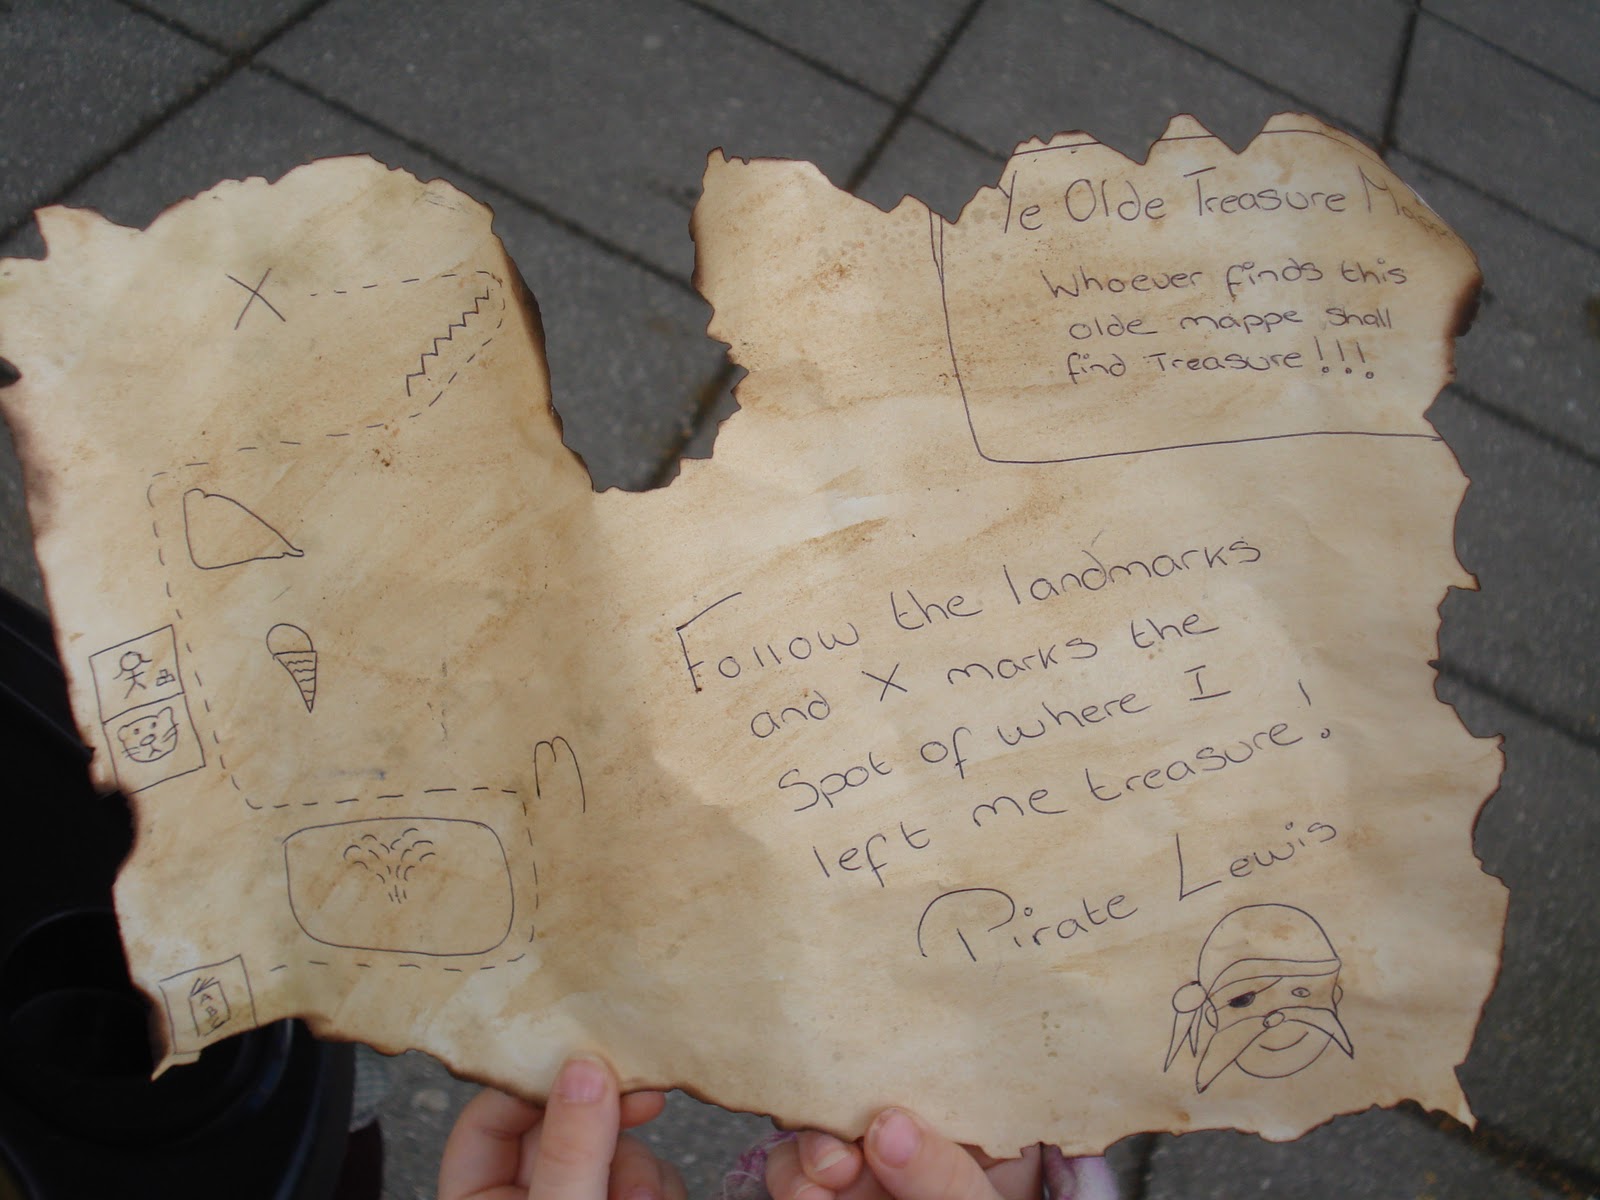 Ye Olde Treasure Map
Whoever finds this
olde mappe shall
find Treasure!!!
X
M
Follow the landmarks
and X marks the
Spot of where I
left me treasure!
Pirate Lewis